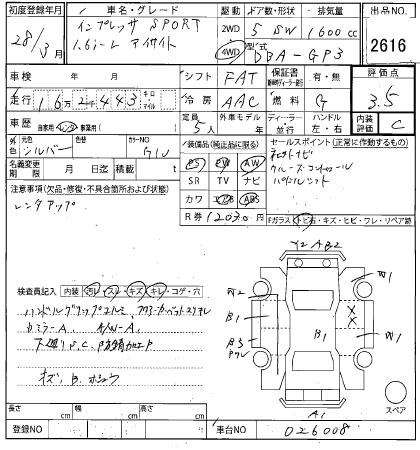 初度登録年月 車名・グレード 駆動 ドア数・形状 排気量 出品NO.
28/3月 インプレッサ SPORT 2WD 5 SW 1600cc 2616
1.6i-L アイサイト 4WD 型式 DBA-GP3
車検 年 月 シフト FAT 保証書 有・無 評価点
走行 16万2443 キロ マイル 冷房 AAC 燃料 G 3.5
車歴 自家用 レンタ 事業用( ) 定員 5人 外車モデル ディーラー 並行 ハンドル 左・右 内装評価 C
外色 元色 シルバー 色替 カラーNO G1U 装備品(純正品に限る) セールスポイント(正常に作動するもの)
PS PW AW ナビ
名義変更期限 月 日迄 積載量 t SR TV ナビ クルーズコントロール
注意事項(欠品・修復・不具合箇所および状態) カワ エアB ABS パドルシフト
レンタアップ R券 12030円 Fガラス(トビ石・キズ・ヒビ・ワレ・リペア跡)
Y2 AB2
検査員記入 内装(汚レ・スレ・キズ・キレ・コゲ・穴)
W2 W1
B1 B1 W1
カミラーA、A/W-A
B3
下廻りP.C、防錆加工P
キズ、B、ホシュウ
A1 スペア
長さ cm 幅 cm 高さ cm
登録NO 車台NO 026008